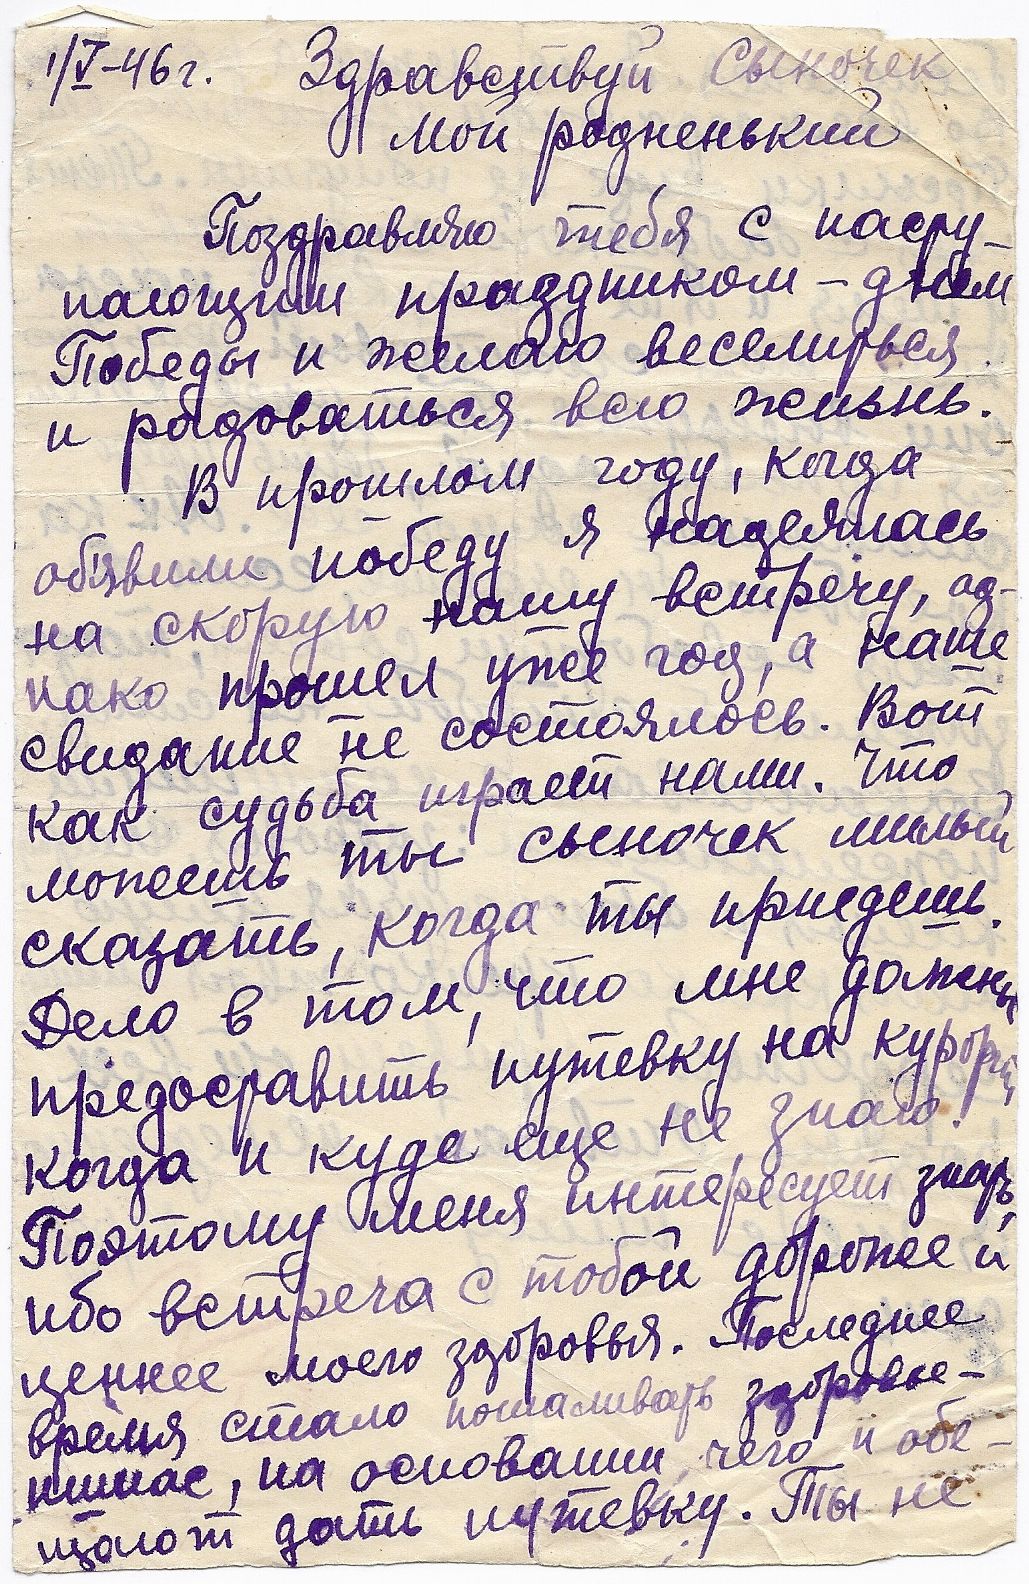 1/V-46 г. Здравствуй сыночек
мой родненький
Поздравляю тебя с насту-
пающим праздником - днем
Победы и желаю веселиться
и радоваться всю жизнь.
В прошлом году, когда
обявили победу я надеялась
на скорую нашу встречу, од-
нако прошел уже год, а наше
свидание не состоялось. Вот
как судьба играет нами. Что
можешь ты сыночек милый
сказать, когда ты приедешь.
Дело в том, что мне должны
предоставить путевку на курорт,
когда и куда еще не знаю.
Поэтому меня интересует знать,
ибо встреча с тобой дороже и
ценнее моего здоровья. Последнее
время стало пошаливать здоровье-
, на основании чего и обе-
щают дать путевку. Ты не